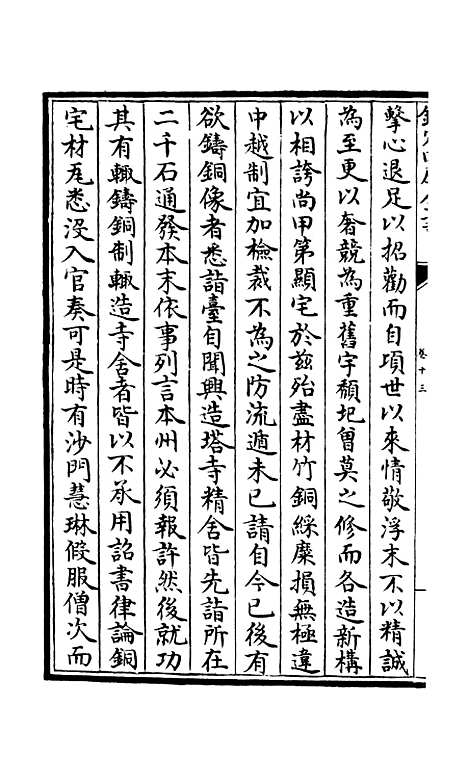 欽定四庫全書
卷十三
擊心退足以招勸而自項世以來情敬浮末不以精誠
為至更以奢競為重舊字頹圯曾莫之修而各造新構
以相誇尚甲第顯宅於茲殆盡材竹銅綵糜損無極違
中越制宜加檢裁不為之防流遁未已請自今已後有
欲鑄銅像者悉詣臺自聞興造塔寺精舍皆先詣所在
二千石通發本末依事列言本州必須報許然後就功
其有輙鑄銅制輙造寺舍者皆以不承用詔書律論銅
宅材瓦悉沒入官奏可是時有沙門慧琳假服僧次而